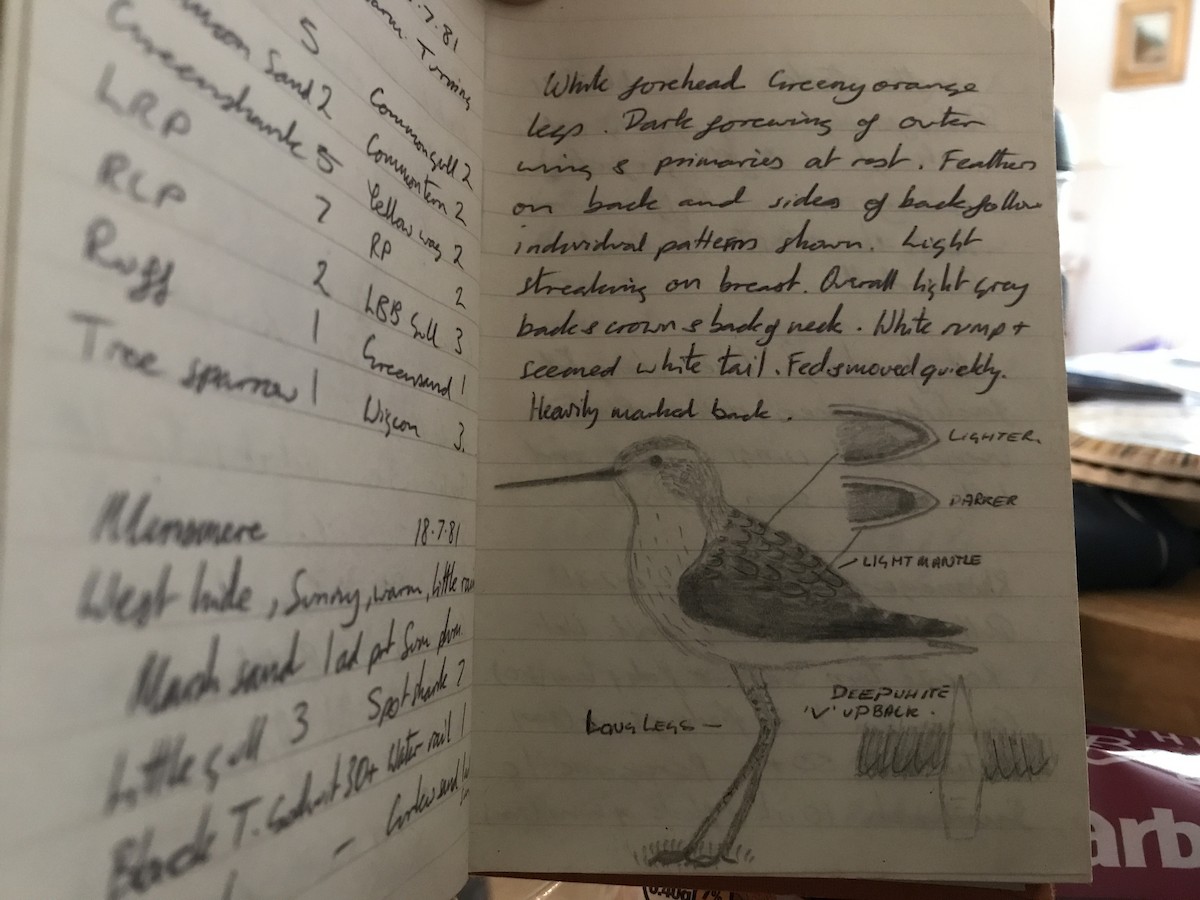 7.81
Common Sand 2
Greenshank 5
LRP
RLP 7
Ruff 2
Tree sparrow 1
5 Common gull 2
Common tern 2
Yellow wag 2
RP 2
LBB Gull 3
Greensand 1
Wigeon 3.
Minsmere 18.7.81
West hide, Sunny, warm, little
Marsh sand 1 ad pt sum plum.
Little gull 3 Spotshank 7
Black T. Godwit 30+ Water rail 1
- Curlew sand
White forehead Greeny orange
legs. Dark forewing of outer
wing & primaries at rest. Feathers
on back and sides of back follow
individual patterns shown. Light
streaking on breast. Overall light grey
back & crown & back of neck. White rump +
seemed white tail. Fed & moved quickly.
Heavily marked back.
LIGHTER.
DARKER
LIGHT MANTLE
LONG LEGS —
DEEP WHITE
'V' UP BACK.
arb